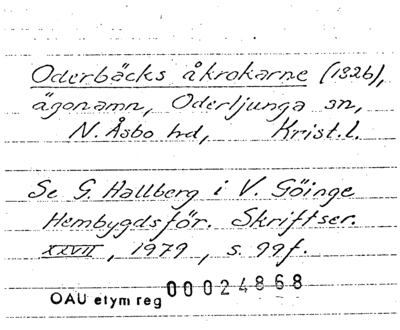 Oderbäcks åkrokarne (1826),
ägonamn, Oderljunga sn,
N. Åsbo hd, Krist.l.
Se G. Hallberg i V. Göinge
Hembygdsför. Skriftser.
XXVII, 1979, s. 99f.
00024868
OAU etym reg